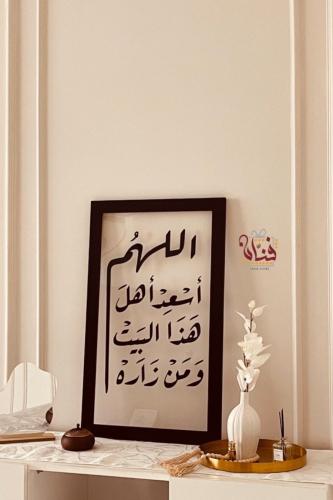 اللهُم
أسْعِدْ أهلَ
هَذَا البَيتْ
وَمَنْ زَارَهْ
فنّان